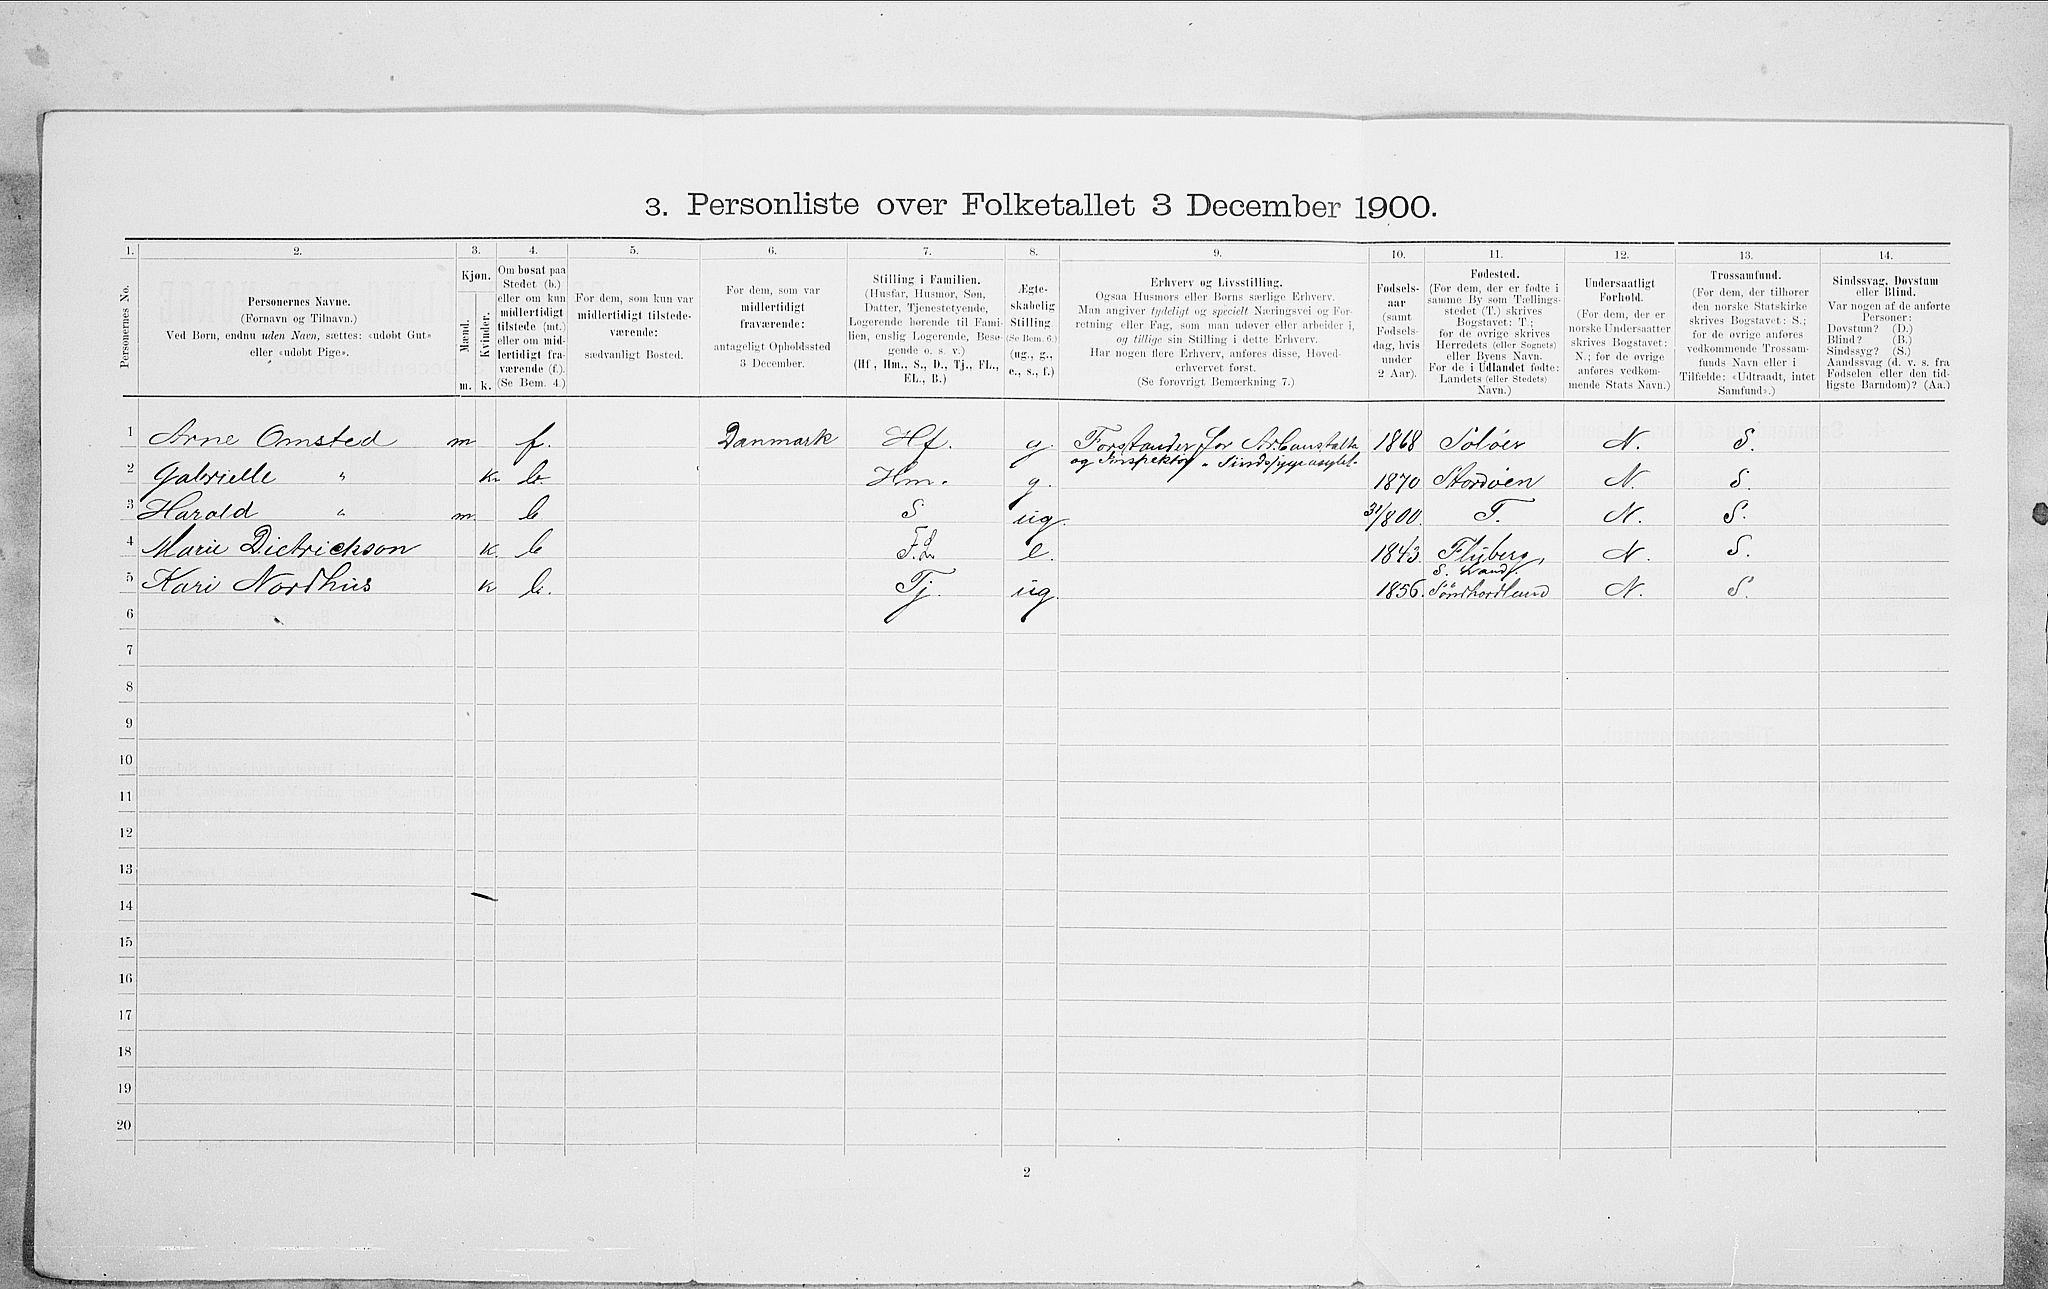 3. Personliste over Folketallet 3 December 1900.
1. 2. 3. 4. 5. 6. 7. 8. 9. 10. 11. 12. 13. 14.
Personernes No.
Personernes Navne.
(Fornavn og Tilnavn.)
Ved Børn, endnu uden Navn, sættes: «udobt Gut»
eller «udobt Pige».
Kjøn.
Mænd.
Kvinder.
m. k.
Om bosat paa
Stedet (b.)
eller om kun
midlertidigt
tilstede (mt.)
eller om mid-
lertidigt fra-
værende (f.).
(Se Bem. 4.)
For dem, som kun var
midlertidigt tilstede-
værende:
sædvanligt Bosted.
For dem, som var
midlertidigt
fraværende:
antageligt Opholdssted
3 December.
Stilling i Familien.
(Husfar, Husmor, Søn,
Datter, Tjenestetyende,
Logerende hørende til Fami-
lien, enslig Logerende, Besø-
gende o. s. v.)
(Hf., Hm., S., D., Tj., FL.,
EL., B.)
Ægte-
skabelig
Stilling
(Se Bem. 6.)
(ug., g.,
e., s., f.)
Erhverv og Livsstilling.
Ogsaa Husmors eller Børns særlige Erhverv.
Man angiver tydeligt og specielt Næringsvei og For-
retning eller Fag, som man udøver eller arbeider i,
og tillige sin Stilling i dette Erhverv.
Har nogen flere Erhverv, anføres disse, Hoved-
erhvervet først.
(Se forøvrigt Bemærkning 7.)
Fødsels-
aar
(samt
Fødsels-
dag, hvis
under
2 Aar).
Fødested.
(For dem, der er fødte i
samme By som Tællings-
stedet (T.) skrives
Bogstavet: T.;
for de øvrige skrives
Herredets (eller Sognets)
eller Byens Navn.
For de i Udlandet fødte:
Landets (eller Stedets)
Navn.)
Undersaatligt
Forhold.
(For dem, der er
norske Undersaatter
skrives Bogstavet:
N.; for de øvrige
anføres vedkom-
mende Stats Navn.)
Trossamfund.
(For dem, der tilhører
den norske Statskirke
skrives Bogstavet: S.;
for de øvrige anføres
vedkommende Trossam-
funds Navn eller i
Tilfælde: «Udtraadt, intet
Samfund».)
Sindssvag, Døvstum
eller Blind.
Var nogen af de anførte
Personer:
Døvstum? (D.)
Blind? (B.)
Sindssyg? (S.)
Aandssvag (d. v. s. fra
Fødselen eller den tid-
ligste Barndom)? (Aa.)
1 Arne Omsted m f. Danmark Hf. g. Forstander for Arb.anstalta 1868 Soløer N. S.
og Inspektør " Sindssygeasylet.
2 Gabrielle " k. b. Hm. g. 1870 Stordøen N. S.
3 Harald " m. b S ug. 31/8 00. T. N. S.
4 Marie Dietrichson k. b e. 1843. Fluberg, N. S.
S. Land.
5 Kari Nordhus k b. Tj. ug. 1856. Söndhordlund N. S.
6
7
8
9
10
11
12
13
14
15
16
17
18
19
20
2